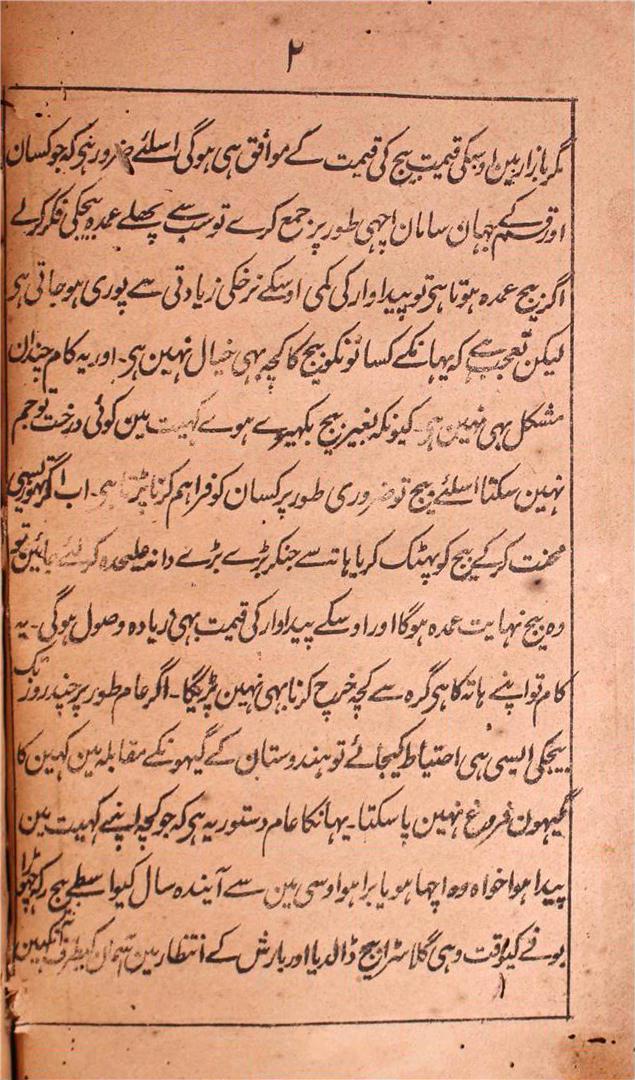 ۲
مگر بازار مین اوسکی قیمت بیج کی قیمت کے موافق ہی ہوگی اسلئے ضرور ہی کہ جو کسان
اور قسم کے جہان سامان اچہی طور پر جمع کرے تو سب سے پہلے عمدہ بیجکی فکر کرلے
اگر بیج عمدہ ہوتا ہی تو پیداوار کی کمی اوسکے نرخکی زیادتی سے پوری ہوجاتی ہی
لیکن تعجب ہے کہ یہانکے کسانونکو بیج کا کچہ بہی خیال نہین ہی۔ اور یہ کام چندان
مشکل بہی نہین ہی۔ کیونکہ بغیر بیج بکہیرے ہوے کہیت مین کوئی درخت تو جم
نہین سکتا اسلئے بیج تو ضروری طور پر کسان کو فراہم کرنا پڑتا ہی۔ اب اگر تہوڑیسی
محنت کرکے بیج کو پہٹک کر یا ہاتہ سے چنکر بڑے بڑے دانہ علیحدہ کرلئے جائین تو
وہ بیج نہایت عمدہ ہوگا اور اوسکے پیداوار کی قیمت بہی زیادہ وصول ہوگی۔ یہ
کام تو اپنے ہاتہ کا ہی گرہ سے کچہ خرچ کرنا بہی نہین پڑیگا۔ اگر عام طور پر چند روز تک
بیجکی ایسی ہی احتیاط کیجائے تو ہندوستان کے گیہونکے مقابلہ مین کہین کا
گیہون فروغ نہین پاسکتا۔ یہانکا عام دستور یہ ہی کہ جو کچہ اپنے کہیت مین
پیدا ہوا خواہ وہ اچہا ہو یا برا ہو اوسی مین سے آیندہ سال کیواسطے بیج رکہ چہوڑا
بونے کیوقت وہی گلا سڑا بیج ڈالدیا اور بارش کے انتظار مین آسمان کیطرف